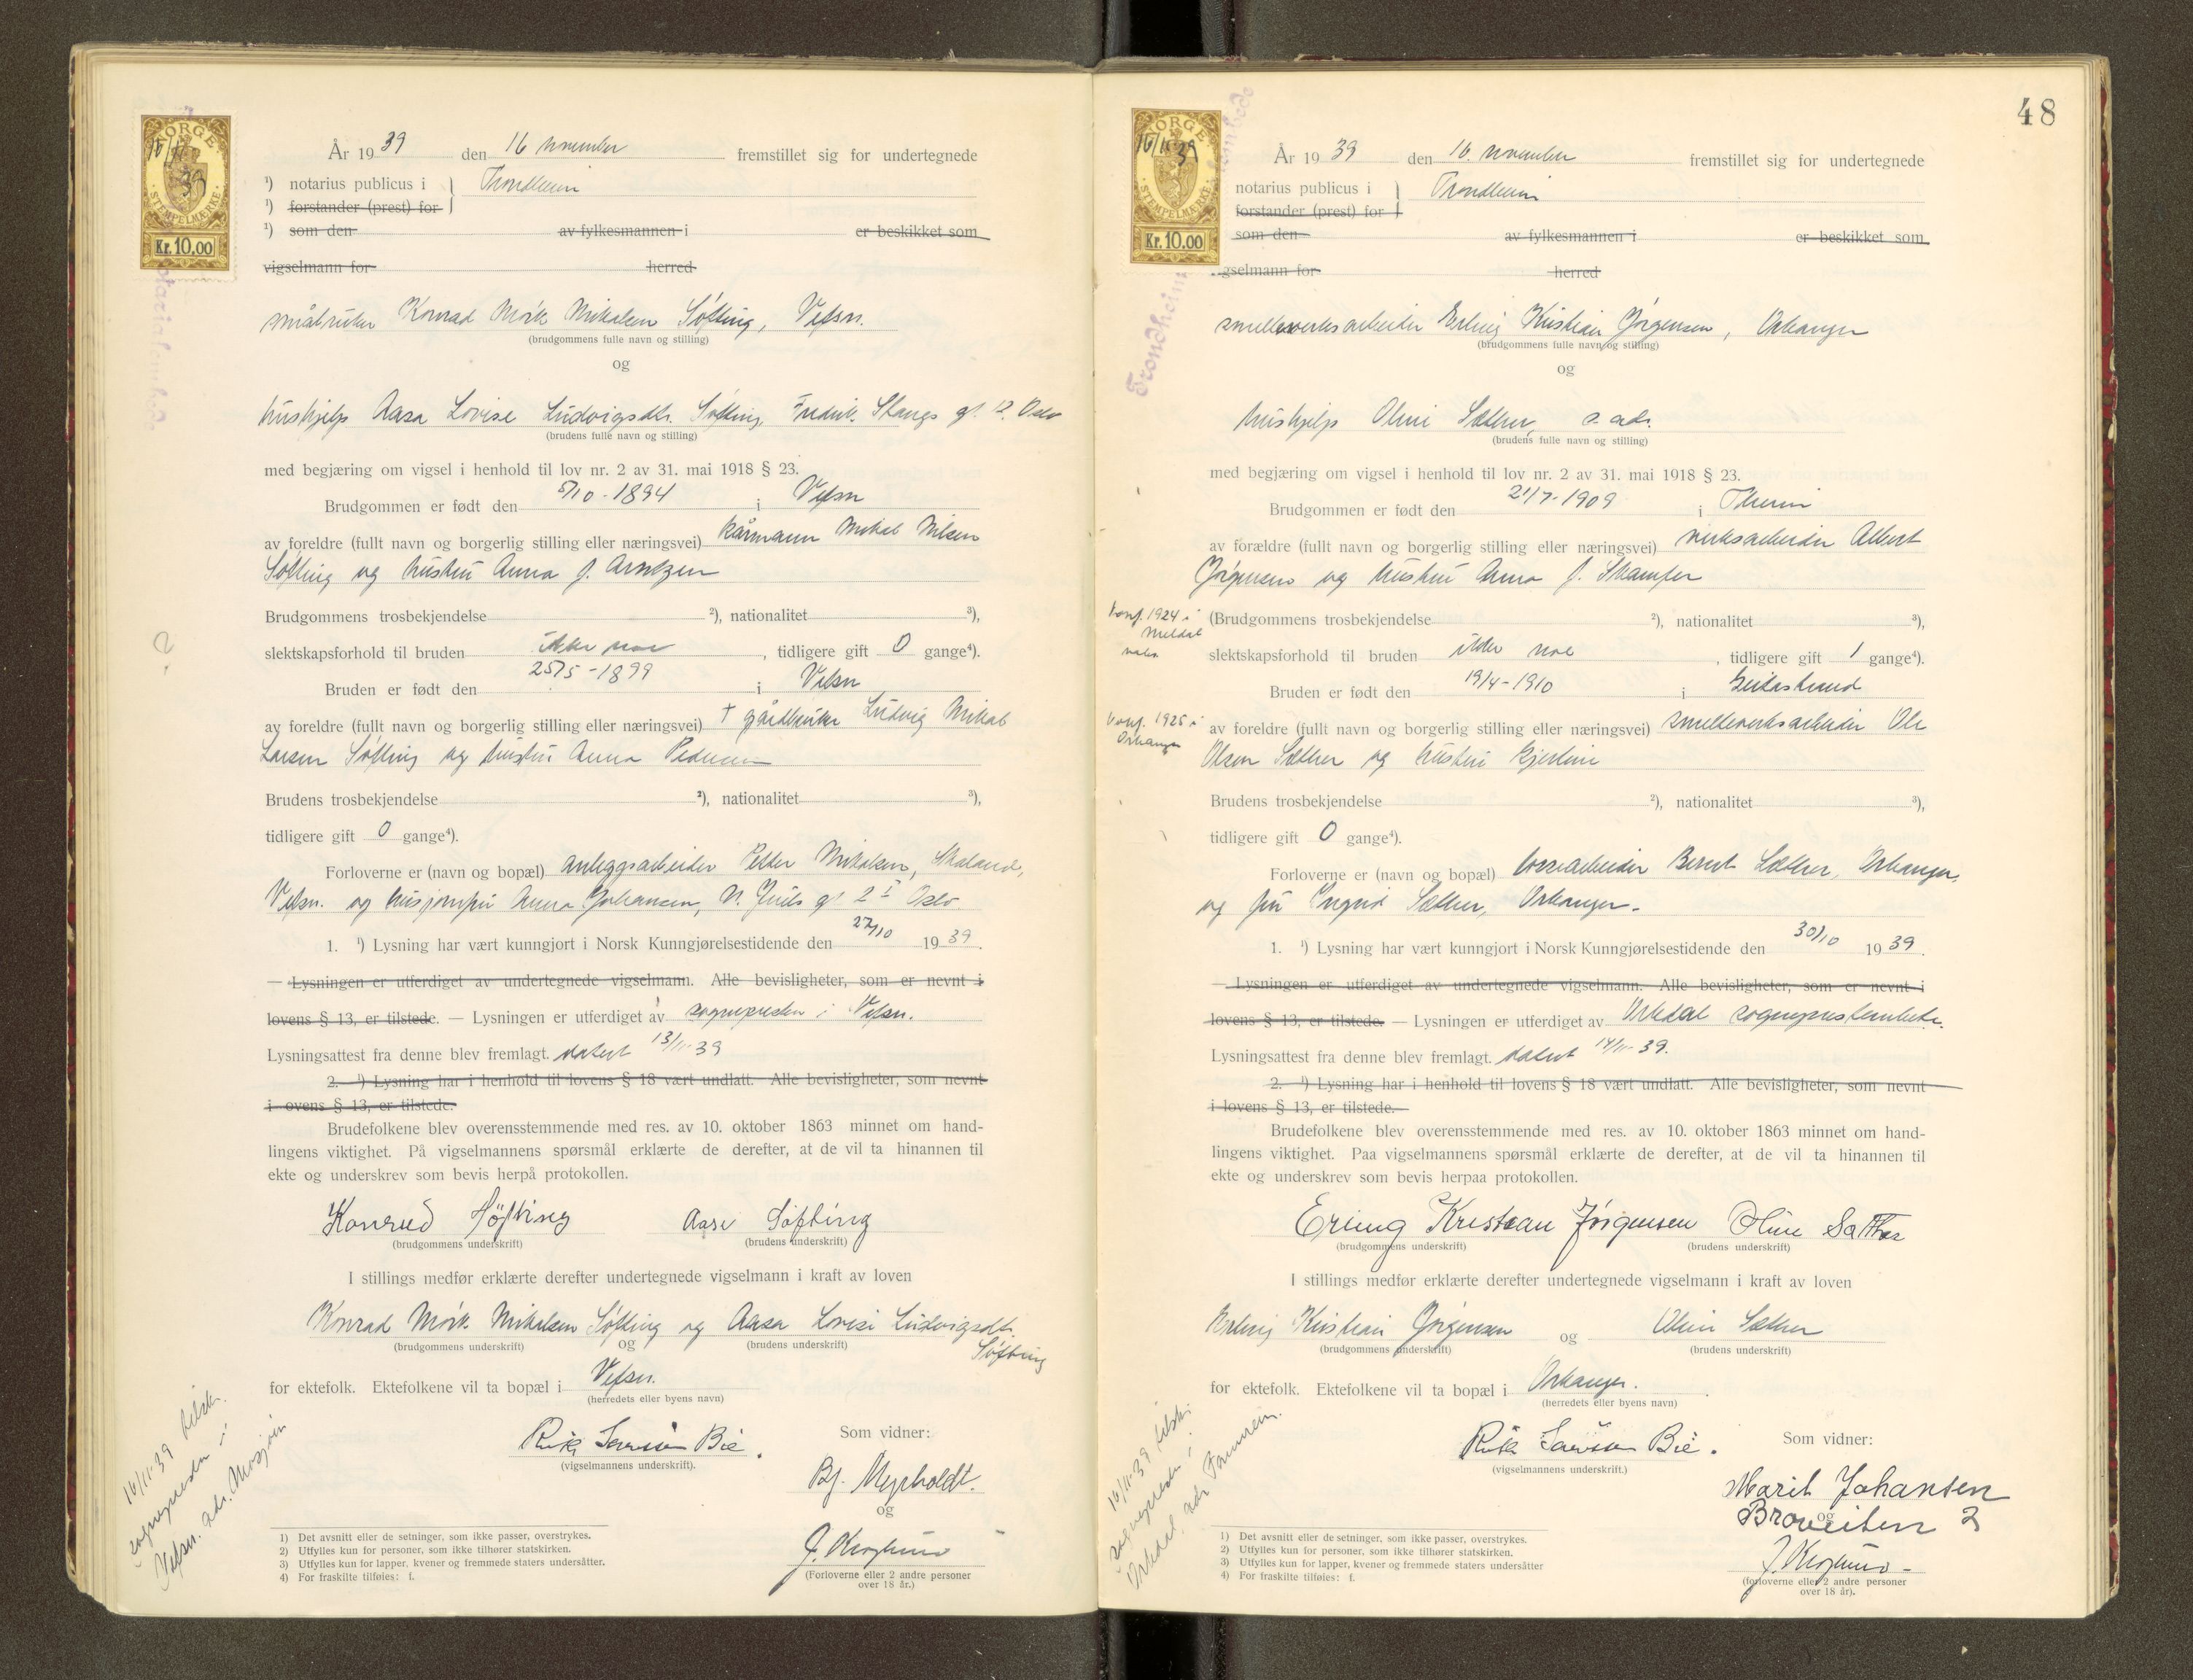 NORGE
16/11 39
STEMPELMÆRKE
Kr. 10.00
År 19 39 den 16 november fremstillet sig for undertegnede
¹) notarius publicus i } Trondheim
¹) forstander (prest) for
¹) som den av fylkesmannen i er beskikket som
vigselmann for herred
småbruker Konrad Mørk Mikalsen Søfting, Vefsn.
(brudgommens fulle navn og stilling)
og
hushjelp Aasa Lovise Ludvigsdtr. Søfting, Fredrik Stangs gt. 12. Oslo
(brudens fulle navn og stilling)
med begjæring om vigsel i henhold til lov nr. 2 av 31. mai 1918 § 23.
Brudgommen er født den 5/10-1894 i Vefsn
av foreldre (fullt navn og borgerlig stilling eller næringsvei) kårmann Mikal Nilsen
Søfting og hustru Anna J. Arntzen
Brudgommens trosbekjendelse ²), nationalitet ³),
slektskapsforhold til bruden ikke noe, tidligere gift 0 gange⁴).
Bruden er født den 25/5-1899 i Vefsn
av foreldre (fullt navn og borgerlig stilling eller næringsvei) † gårdbruker Ludvig Mikal
Larsen Søfting og hustru Anna Pedersen
Brudens trosbekjendelse ²), nationalitet ³),
tidligere gift 0 gange⁴).
Forloverne er (navn og bopæl) anleggsarbeider Petter Mikalsen, Skaland,
Vefsn. og husjomfru Anna Johansen, N. Juels gt 2 I Oslo
1. ¹) Lysning har vært kunngjort i Norsk Kunngjørelsestidende den 27/10 19 39.
— Lysningen er utferdiget av undertegnede vigselmann. Alle bevisligheter, som er nevnt i
lovens § 13, er tilstede. — Lysningen er utferdiget av sognepresten i Vefsn.
Lysningsattest fra denne blev fremlagt. datert 13/11-39
2. ¹) Lysning har i henhold til lovens § 18 vært undlatt. Alle bevisligheter, som nevnt
i ovens § 13, er tilstede.
Brudefolkene blev overensstemmende med res. av 10. oktober 1863 minnet om hand-
lingens viktighet. På vigselmannens spørsmål erklærte de derefter, at de vil ta hinannen til
ekte og underskrev som bevis herpå protokollen.
Konrad Søfting Aase Søfting
(brudgommens underskrift) (brudens underskrift)
I stillings medfør erklærte derefter undertegnede vigselmann i kraft av loven
Konrad Mørk Mikalsen Søfting og Aasa Lovise Ludvigsdtr.
Søfting
(brudgommens underskrift) og (brudens underskrift)
for ektefolk. Ektefolkene vil ta bopæl i Vefsn.
(herredets eller byens navn)
Bie.
(vigselmannens underskrift).
Som vidner:
Bj. Myrholdt.
og
(Forloverne eller 2 andre personer
over 18 år.)
16/11-39 tilskr.
sognepresten i
Vefsn. adr. Mosjøen
1) Det avsnitt eller de setninger, som ikke passer, overstrykes.
2) Utfylles kun for personer, som ikke tilhører statskirken.
3) Utfylles kun for lapper, kvener og fremmede staters undersåtter.
4) For fraskilte tilføies: f.
48
NORGE
16/11 39
STEMPELMÆRKE
Kr. 10.00
Trondheim
År 19 39 den 16. november fremstillet sig for undertegnede
notarius publicus i } Trondheim
forstander (prest) for
som den av fylkesmannen i er beskikket som
gselmann for herred
smelteverksarbeider Erling Kristian Jørgensen, Orkanger
(brudgommens fulle navn og stilling)
og
hushjelp Oline Sæther, s. adr.
(brudens fulle navn og stilling)
med begjæring om vigsel i henhold til lov nr. 2 av 31. mai 1918 § 23.
Brudgommen er født den 21/7-1909 i Theim
av forældre (fullt navn og borgerlig stilling eller næringsvei) verksarbeider Albert
Jørgensen og hustru Anna J. Skamfer
konf. 1924 i
Meldal
(Brudgommens trosbekjendelse ²), nationalitet ³),
slektskapsforhold til bruden ikke noe, tidligere gift 1 gange⁴).
Bruden er født den 19/4-1910 i Geitastrand
konf. 1925 i
Orkanger
av foreldre (fullt navn og borgerlig stilling eller næringsvei) smelteverksarbeider Ole
Olsen Sæther og hustru Kjerstine
Brudens trosbekjendelse ²), nationalitet ³),
tidligere gift 0 gange⁴).
Forloverne er (navn og bopæl) Bernt Sæther, Orkanger,
og fru Ingrid Sæther, Orkanger.
1. ¹) Lysning har vært kunngjort i Norsk Kunngjørelsestidende den 30/10 19 39.
— Lysningen er utferdiget av undertegnede vigselmann. Alle bevisligheter, som er nevnt i
lovens § 13, er tilstede. — Lysningen er utferdiget av Orkdal sogneprestembete.
Lysningsattest fra denne blev fremlagt. datert 14/11-39.
2. ¹) Lysning har i henhold til lovens § 18 vært undlatt. Alle bevisligheter, som nevnt
i lovens § 13, er tilstede.
Brudefolkene blev overensstemmende med res. av 10. oktober 1863 minnet om hand-
lingens viktighet. Paa vigselmannens spørsmål erklærte de derefter, at de vil ta hinannen til
ekte og underskrev som bevis herpaa protokollen.
Erling Kristian Jørgensen Oline Sæther
(brudgommens underskrift) (brudens underskrift)
I stillings medfør erklærte derefter undertegnede vigselmann i kraft av loven
Erling Kristian Jørgensen og Oline Sæther
(brudgommens underskrift) (brudens underskrift)
for ektefolk. Ektefolkene vil ta bopæl i Orkanger.
(herredets eller byens navn)
Bie.
(vigselmannens underskrift.)
Som vidner:
Marit Johansen
og
Broveiten 2
(forloverne eller 2 andre personer
over 18 år).
16/11-39 tilskr.
sognepresten i
Orkdal. adr Fannrem.
1) Det avsnitt eller de setninger, som ikke passer, overstrykes.
2) Utfylles kun for personer, som ikke tilhører statskirken.
3) Utfylles kun for lapper, kvener og fremmede staters undersåtter
4) For fraskilte tilføies: f.